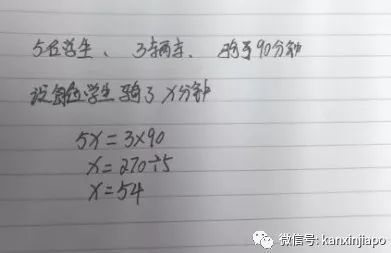 5位学生、 3辆车、 骑了90分钟
设每位学生骑了X分钟
5x=3x90
x=270÷5
x=54
微信号: kanxinjiapo